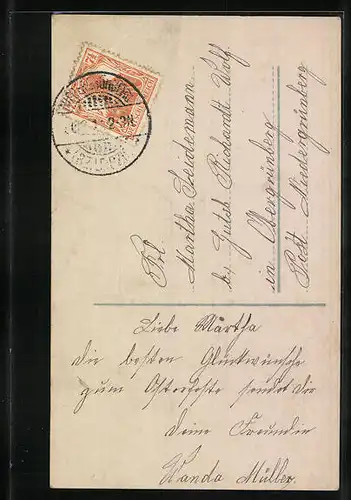 Frl.
Martha Seidemann
b. Gutsb. Richardt Wolf
in Obergrünberg
Post Niedergrünberg
Liebe Martha
die besten Glückwünsche
zum Osterfeste sendet Dir
deine Freundin
Wanda Müller.